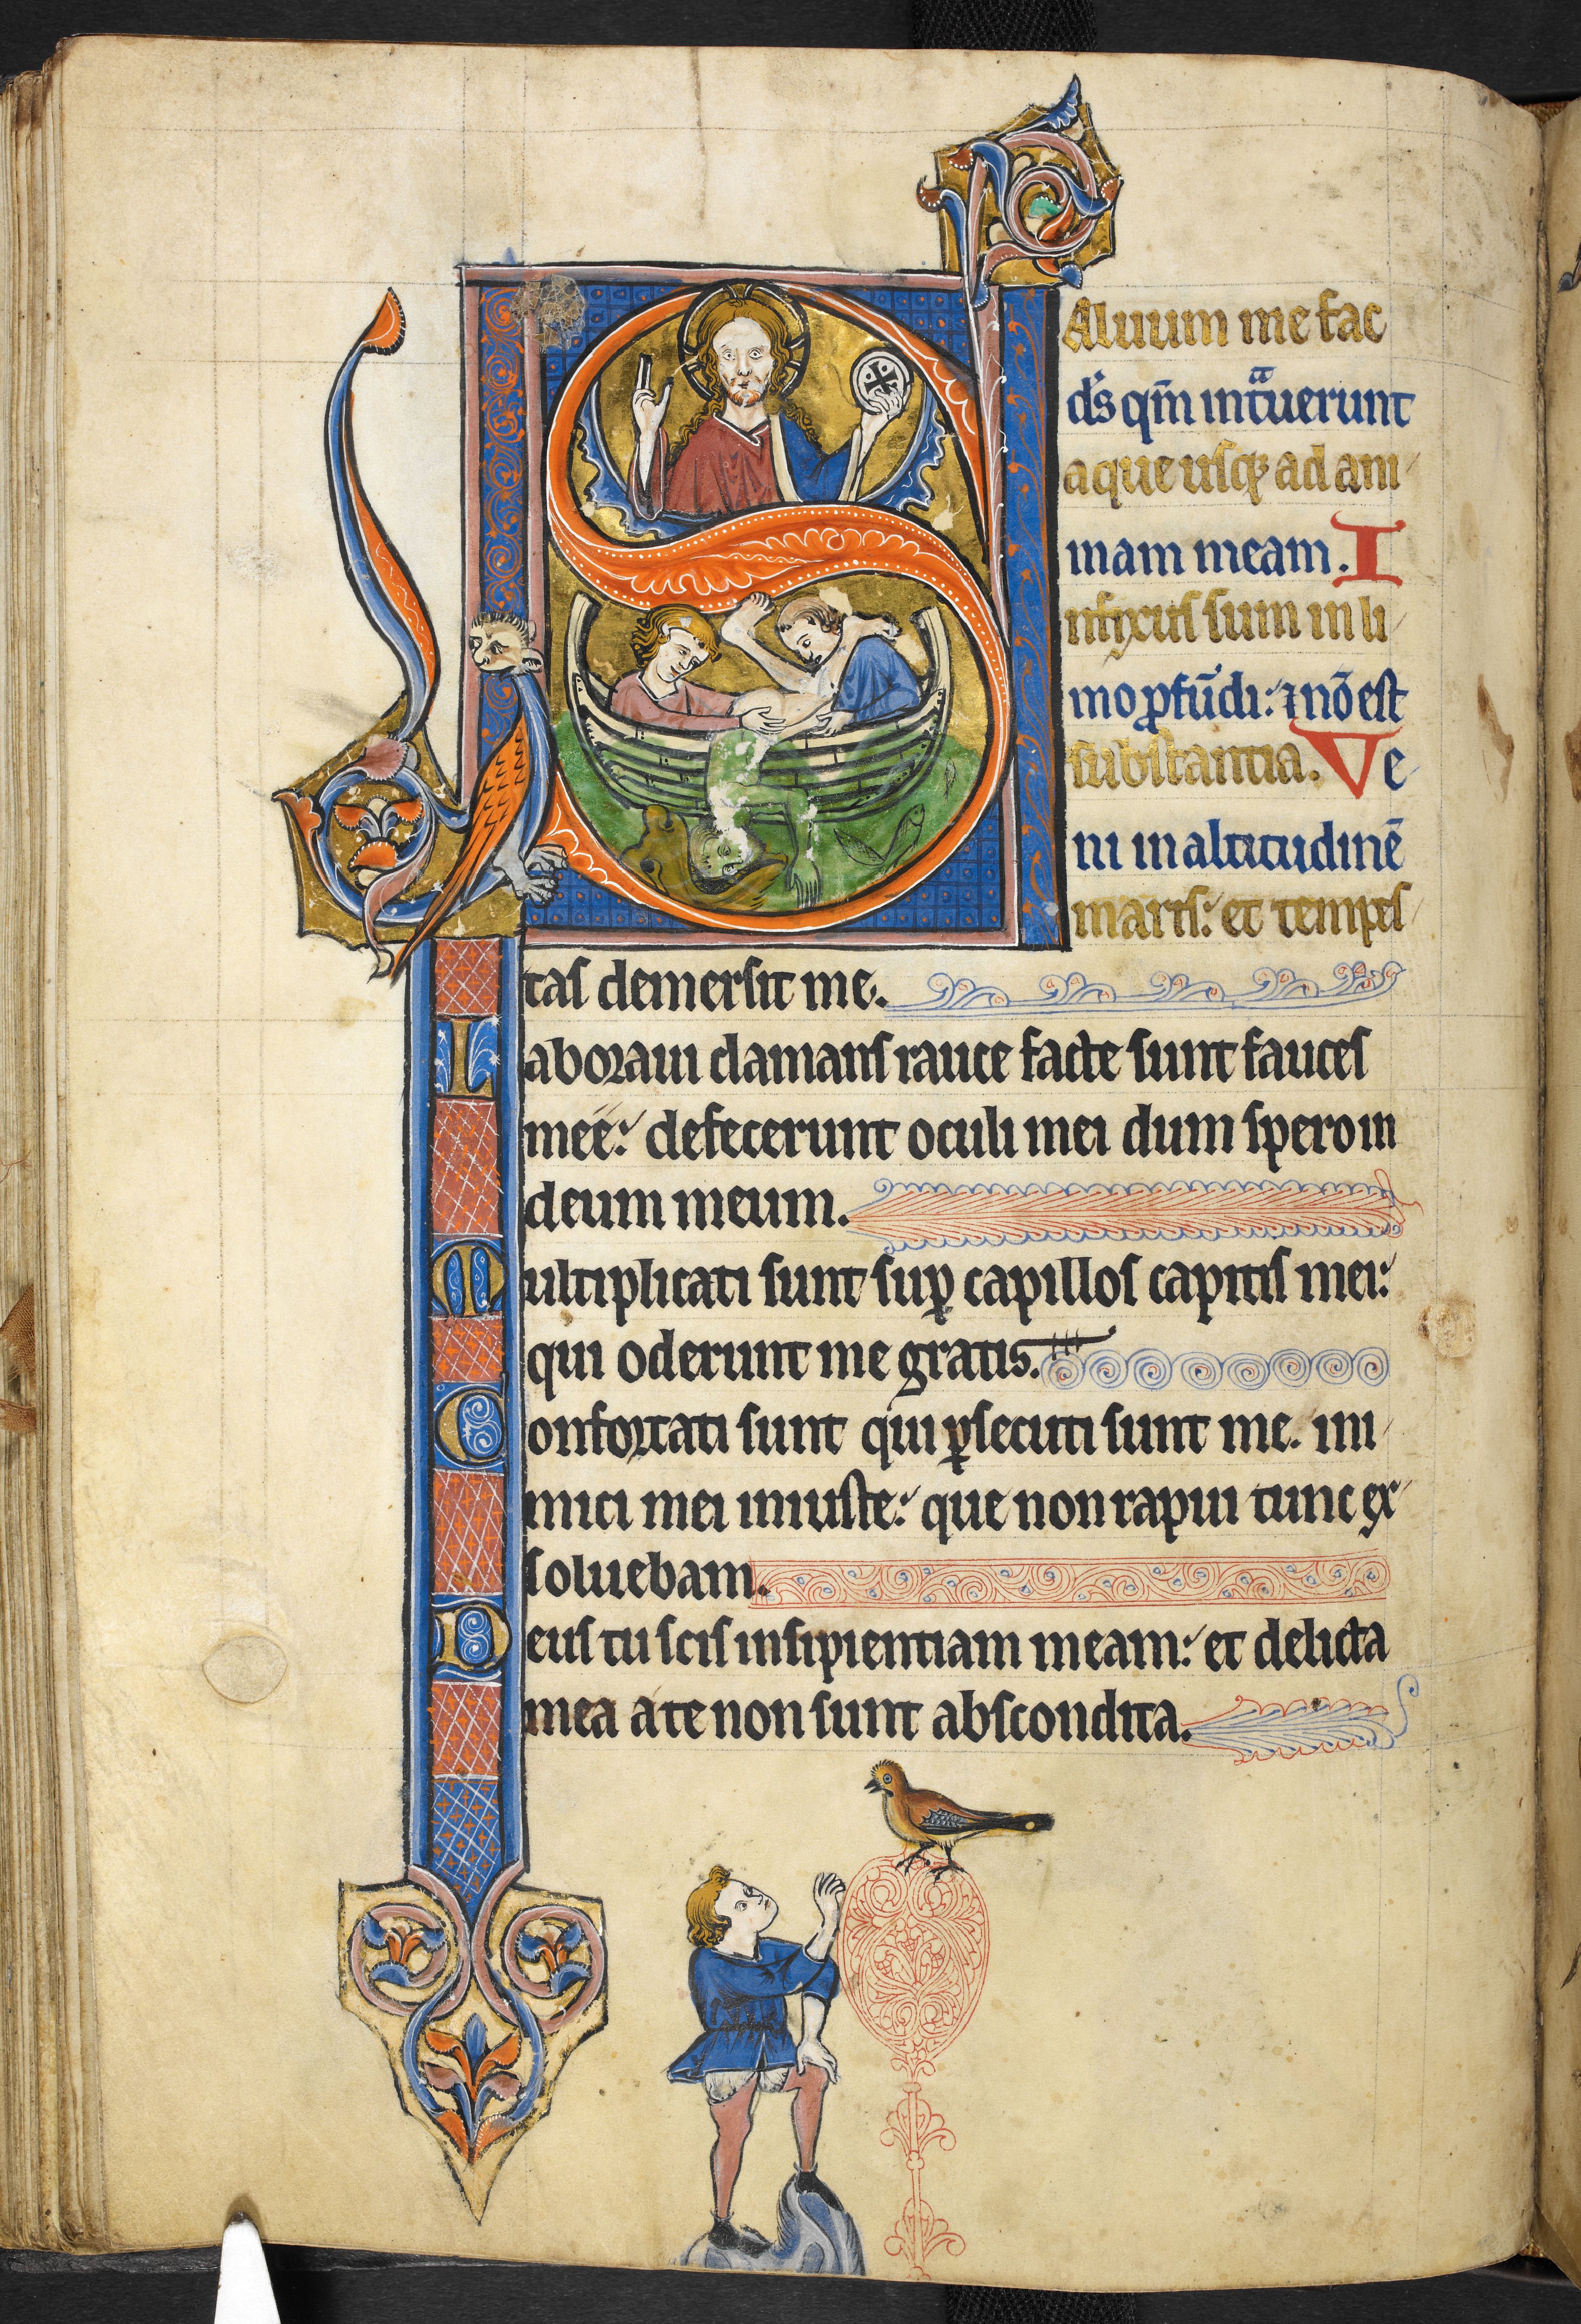 Aluum me fac
d's qm̄ intͣuerunt
aque usq; ad ani
mam meam. I
nfixus sum in li
mo ꝓfūdi: ⁊ nō est
substantia. Ve
ni in altitudinē
maris: et tempes
tas demersit me.
Laboraui clamans rauce facte sunt fauces
mee: defecerunt oculi mei dum spero in
deum meum.
Multiplicati sunt suꝑ capillos capitis mei:
qui oderunt me gratis.
Confortati sunt qui ꝑsecuti sunt me. ini
mici mei iniuste: que non rapui tunc ex
soluebam.
Deus tu scis insipientiam meam: et delicta
mea a te non sunt abscondita.